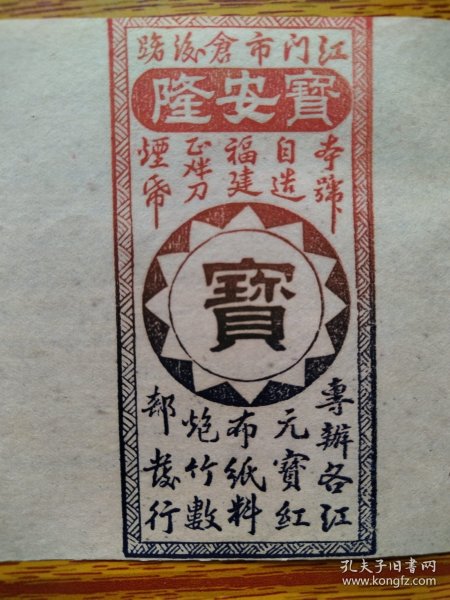 江门市倉後路
寶安隆
本號
自造
福建
正刀
煙帋
寶
專辦各江
元寶紅
布紙料
炮竹數
部發行
孔夫子旧书网
www.kongfz.com